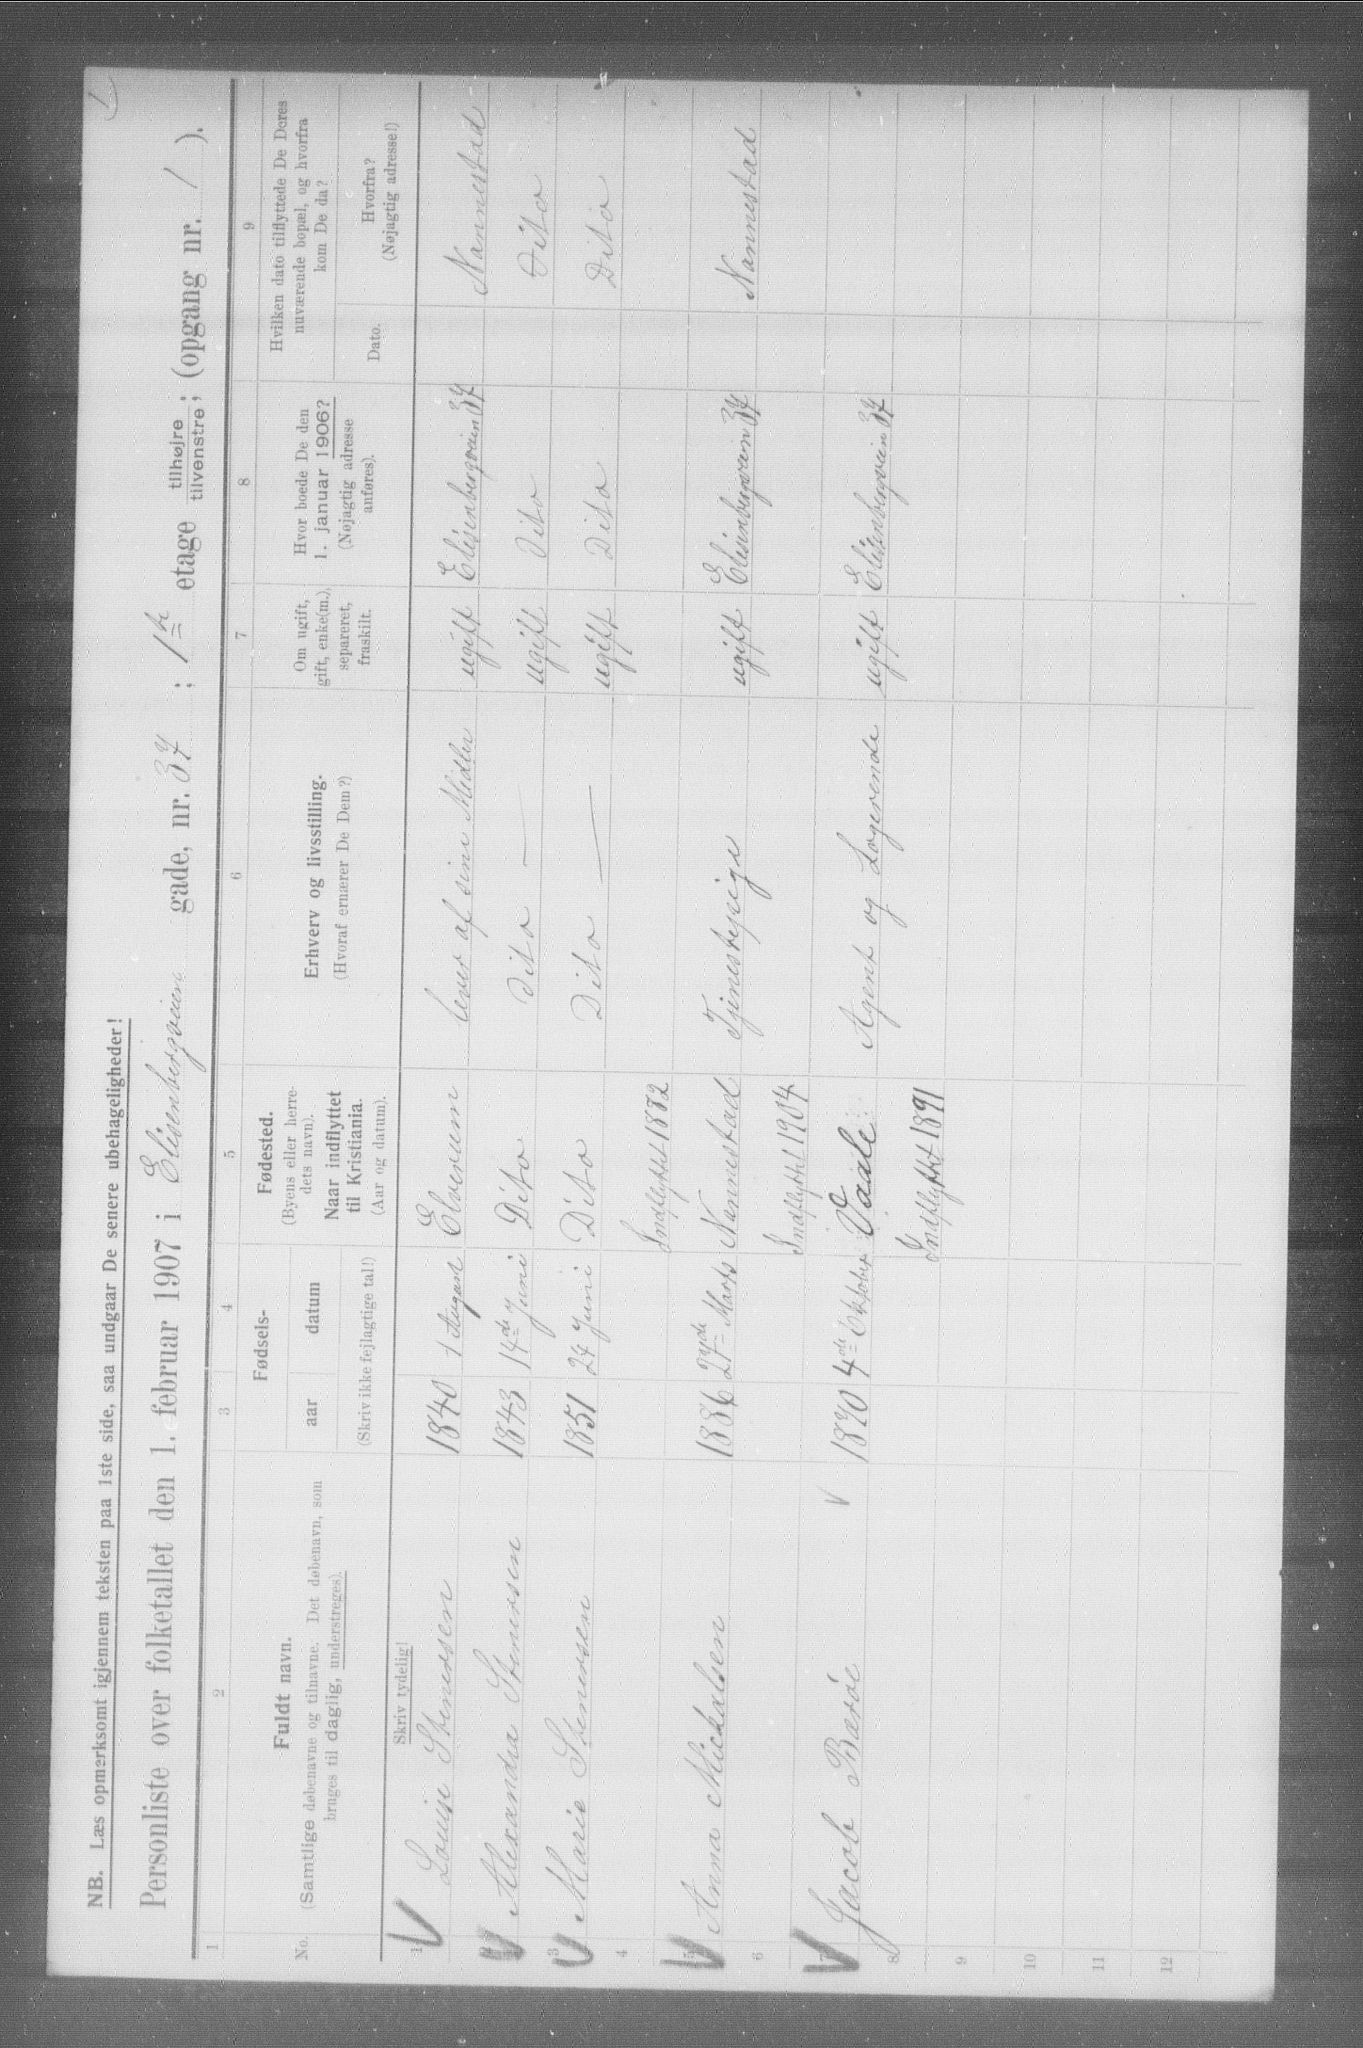 NB. Læs opmærksomt igjennem teksten paa 1ste side, saa undgaar De senere ubehageligheder!
Personliste over folketallet den 1. februar 1907 i Elisenbergveien gade, nr. 37 ; 1ste etage tilhøjre tilvenstre; (opgang nr. 1 ).
1 2 3 4 5 6 7 8 9
No.
Fuldt navn.
(Samtlige døbenavne og tilnavne. Det døbenavn, som
bruges til daglig, understreges).
Fødsels-
aar datum
(Skriv ikke fejlagtige tal!)
Fødested.
(Byens eller herre-
dets navn).
Naar indflyttet
til Kristiania.
(Aar og datum).
Erhverv og livsstilling.
(Hvoraf ernærer De Dem?)
Om ugift,
gift, enke(m.),
separeret,
fraskilt.
Hvor boede De den
1. januar 1906?
(Nøjagtig adresse
anføres).
Hvilken dato tilflyttede De Deres
nuværende bopæl, og hvorfra
kom De da?
Dato.
Hvorfra?
(Nøjagtig adresse!)
Skriv tydelig!
1 Louise Stenersen 1840 1 August Elverum lever af sine Midler ugift Elisenbergveien 37 Nannestad
2 Alexandra Stenersen 1843 14de Juni Dito Dito — ugift Dito Dito
3 Marie Stenersen 1851 24 Juni Dito Dito — ugift Dito Dito
4 Indflyttet 1882
5 Anna Mickalsen 1886 27de Marts Nannestad Tjenestepige ugift Elisenbergveien 37 Nannestad
6 Indflyttet 1904
7 Jacob Barøe 1870 4de Oktober Vaale Agent og Logerende ugift Elisenbergveien 37
8 Indflyttet 1891
9
10
11
12